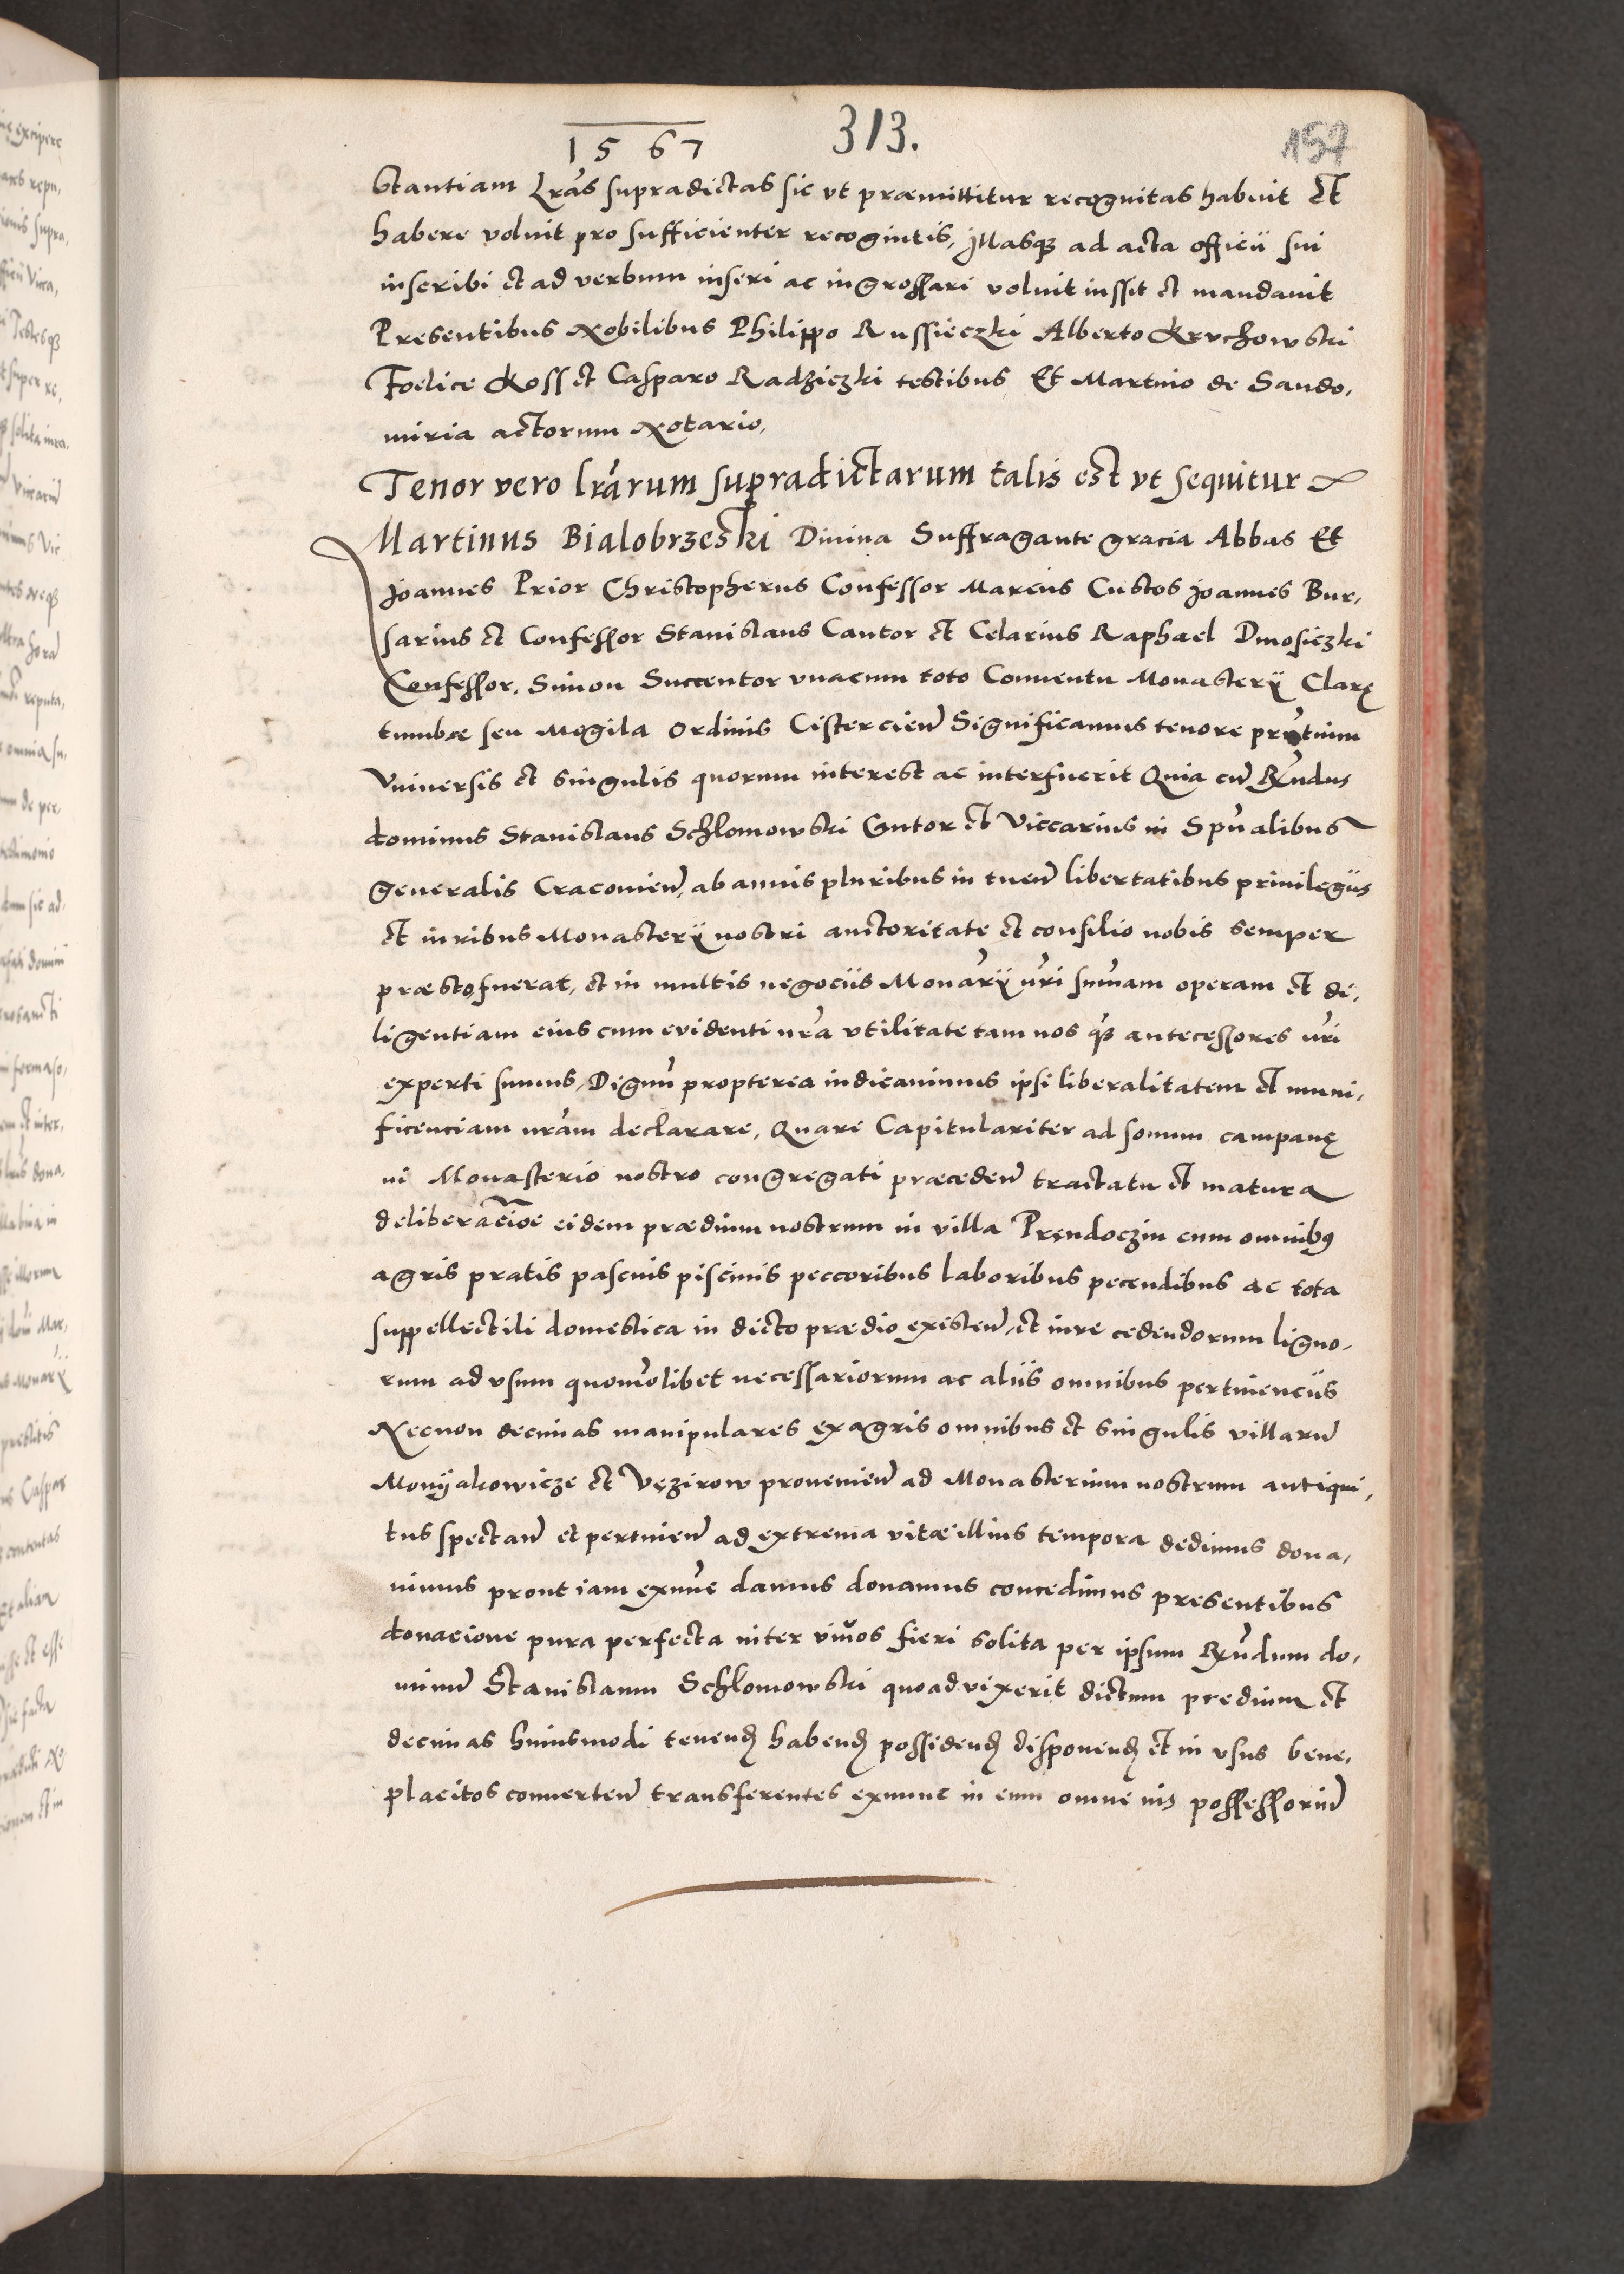 1567 313. 157
stantiam Lras supradictas sic vt præmittitur recognitas habuit Et
habere voluit pro sufficienter recogintis, Illasq3 ad acta officii sui
inscribi et ad verbum inseri ac ingrossari voluit iussit et mandauit
Presentibus Nobilibus Philippo Russieczki Alberto Kruchowski
Foelice Koss et Casparo Radzieczki testibus Et Martino de Sando,
miria actorum Notario,
Tenor vero lrarum supradictarum talis est vt sequitur
Martinus Bialobrzeski Diuina Suffragante gracia Abbas Et
Joannes Prior Christopherus Confessor Marcus Custos Joannes Bur,
sarius et Confessor Stanislaus Cantor et Celarius Raphael Dmosiczki
Confessor, Simon Succentor vnacum toto Conuentu Monasterij Clarę
tumbæ seu Mogila Ordinis Cistercien Significamus tenore prntium
Vniuersis et singulis quorum interest ac interfuerit Quia cu Rndus
dominus Stanislaus Schlomowski Cantor et Viccarius in Spualibus
generalis Cracouien, ab annis pluribus in tuen libertatibus priuilegiis
et iuribus Monasterij nostri auctoritate et consilio nobis semper
præsto fuerat, et in multis negociis Monarij nri sumam operam et di,
ligentiam eius cum euidenti nra vtilitate tam nos q3 antecessores nri
experti sumus, Dignu propterea iudicauimus ipsi liberalitatem et muni,
ficenciam nram declarare, Quare Capitulariter ad sonum campanę
in Monasterio nostro congregati præceden tractatu et matura
deliberacioe eidem prædium nostrum in villa Prendoczin cum omnibus
agris pratis pascuis piscinis peccoribus laboribus pecudibus ac tota
suppellectili domestica in dicto prædio existen, et iure cedendorum ligno-
rum ad vsum quomolibet necessariorum ac aliis omnibus pertinenciis
Necnon decimas manipulares ex agris omnibus et singulis villaru
Monijakowicze et Vęzirow prouenien ad Monasterium nostrum antiqui,
tus spectan et pertinen ad extrema vitæ illius tempora dedimus dona,
uimus prout iam exnunc damus donamus concedimus presentibus
donacione pura perfecta inter viuos fieri solita per ipsum Rndum do,
minu Stanislaum Schlomowski quoad vixerit dictum predium et
decimas huiusmodi tenend habend possidend disponend et in vsus bene,
placitos conuerten transferentes exnunc in eum omne ius possessoriu